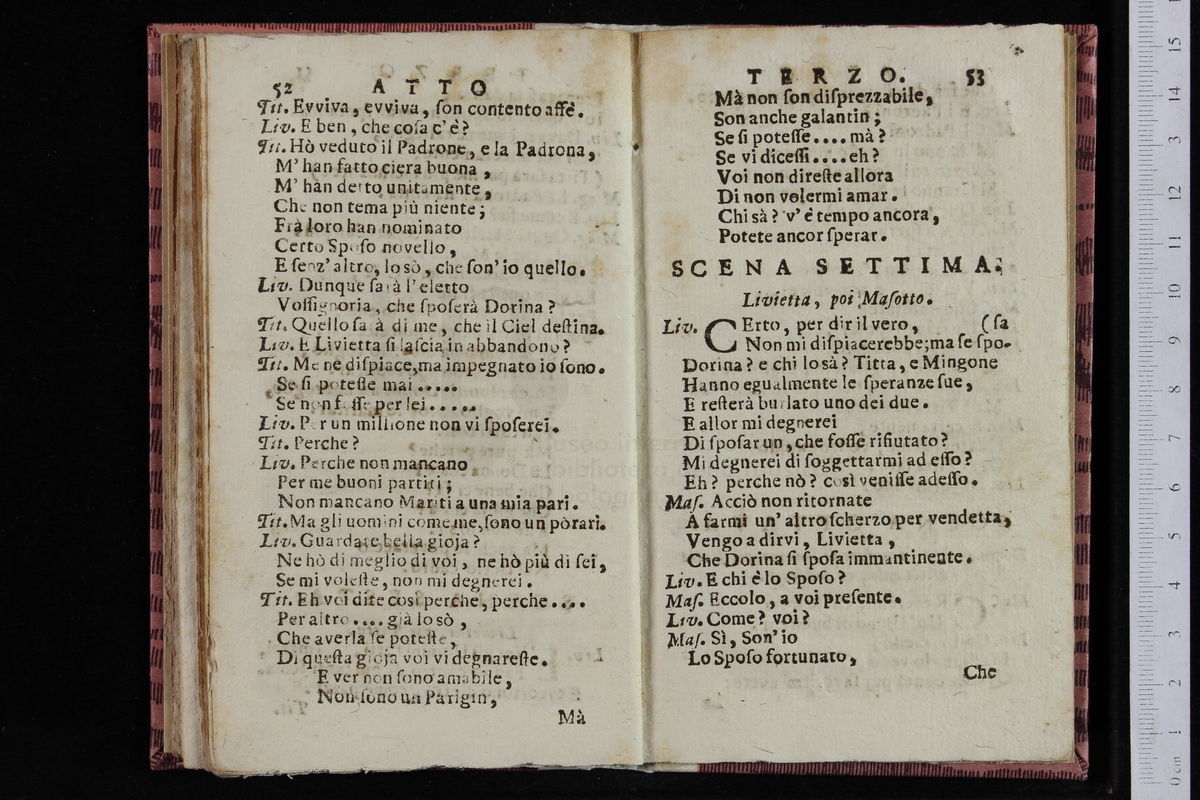 52 ATTO
Tit. Evviva, evviva, ſon contento affè.
Liv. E ben, che coſa c'è?
Tit. Hò veduto il Padrone, e la Padrona,
M'han fatto ciera buona,
M'han detto unitamente,
Che non tema più niente;
Frà loro han nominato
Certo Spoſo novello,
E ſenz'altro, lo sò, che ſon'io quello.
Liv. Dunque ſarà l'eletto
Voſſignoria, che ſpoſerà Dorina?
Tit. Quello ſarà di me, che il Ciel deſtina.
Liv. E Livietta ſi laſcia in abbandono?
Tit. Me ne diſpiace, ma impegnato io ſono.
Se ſi poteſſe mai .....
Se non foſſe per lei .....
Liv. Per un millione non vi ſpoſerei.
Tit. Perche?
Liv. Perche non mancano
Per me buoni partiti;
Non mancano Mariti a una mia pari.
Tit. Ma gli uomini come me, ſono un pò rari.
Liv. Guardate bella gioja?
Ne hò di meglio di voi, ne hò più di ſei,
Se mi voleſte, non mi degnerei.
Tit. Eh voi dite così perche, perche ....
Per altro .... già lo sò,
Che averla ſe poteſte,
Di queſta gioja voi vi degnareſte.
E ver non ſono amabile,
Non ſono un Parigin,
Mà
TERZO. 53
Mà non ſon diſprezzabile,
Son anche galantin;
Se ſi poteſſe .... mà?
Se vi diceſſi .... eh?
Voi non direſte allora
Di non volermi amar.
Chi sà? v'è tempo ancora,
Potete ancor ſperar.
SCENA SETTIMA.
Livietta, poi Maſotto.
Liv. CErto, per dir il vero, (ſa
Non mi diſpiacerebbe; ma ſe ſpo-
Dorina? e chi lo sà? Titta, e Mingone
Hanno egualmente le ſperanze ſue,
E reſterà burlato uno dei due.
E allor mi degnerei
Di ſpoſar un, che foſſe rifiutato?
Mi degnerei di ſoggettarmi ad eſſo?
Eh? perche nò? così veniſſe adeſſo.
Maſ. Acciò non ritornate
A farmi un'altro ſcherzo per vendetta,
Vengo a dirvi, Livietta,
Che Dorina ſi ſpoſa immantinente.
Liv. E chi è lo Spoſo?
Maſ. Eccolo, a voi preſente.
Liv. Come? voi?
Maſ. Sì, Son'io
Lo Spoſo fortunato,
Che